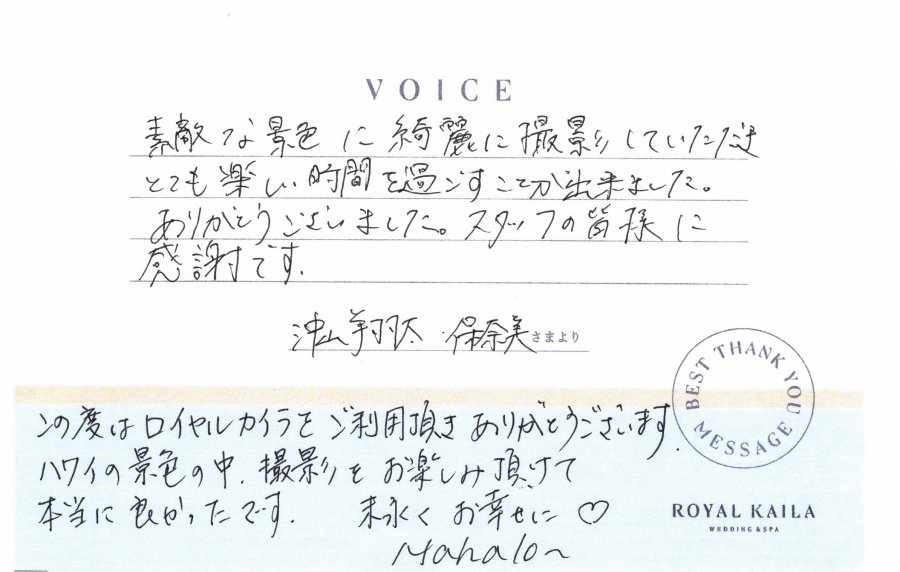 VOICE
素敵な景色に綺麗に撮影していただき
とても楽しい時間を過ごすことが出来ました。
ありがとうございました。スタッフの皆様に
感謝です.
沖山翔太 保奈美さまより
BEST THANK YOU MESSAGE
この度はロイヤルカイラをご利用頂きありがとうございます.
ハワイの景色の中.撮影をお楽しみ頂けて
本当に良かったです. 末永くお幸せに♡
Mahalo~
ROYAL KAILA
WEDDING & SPA